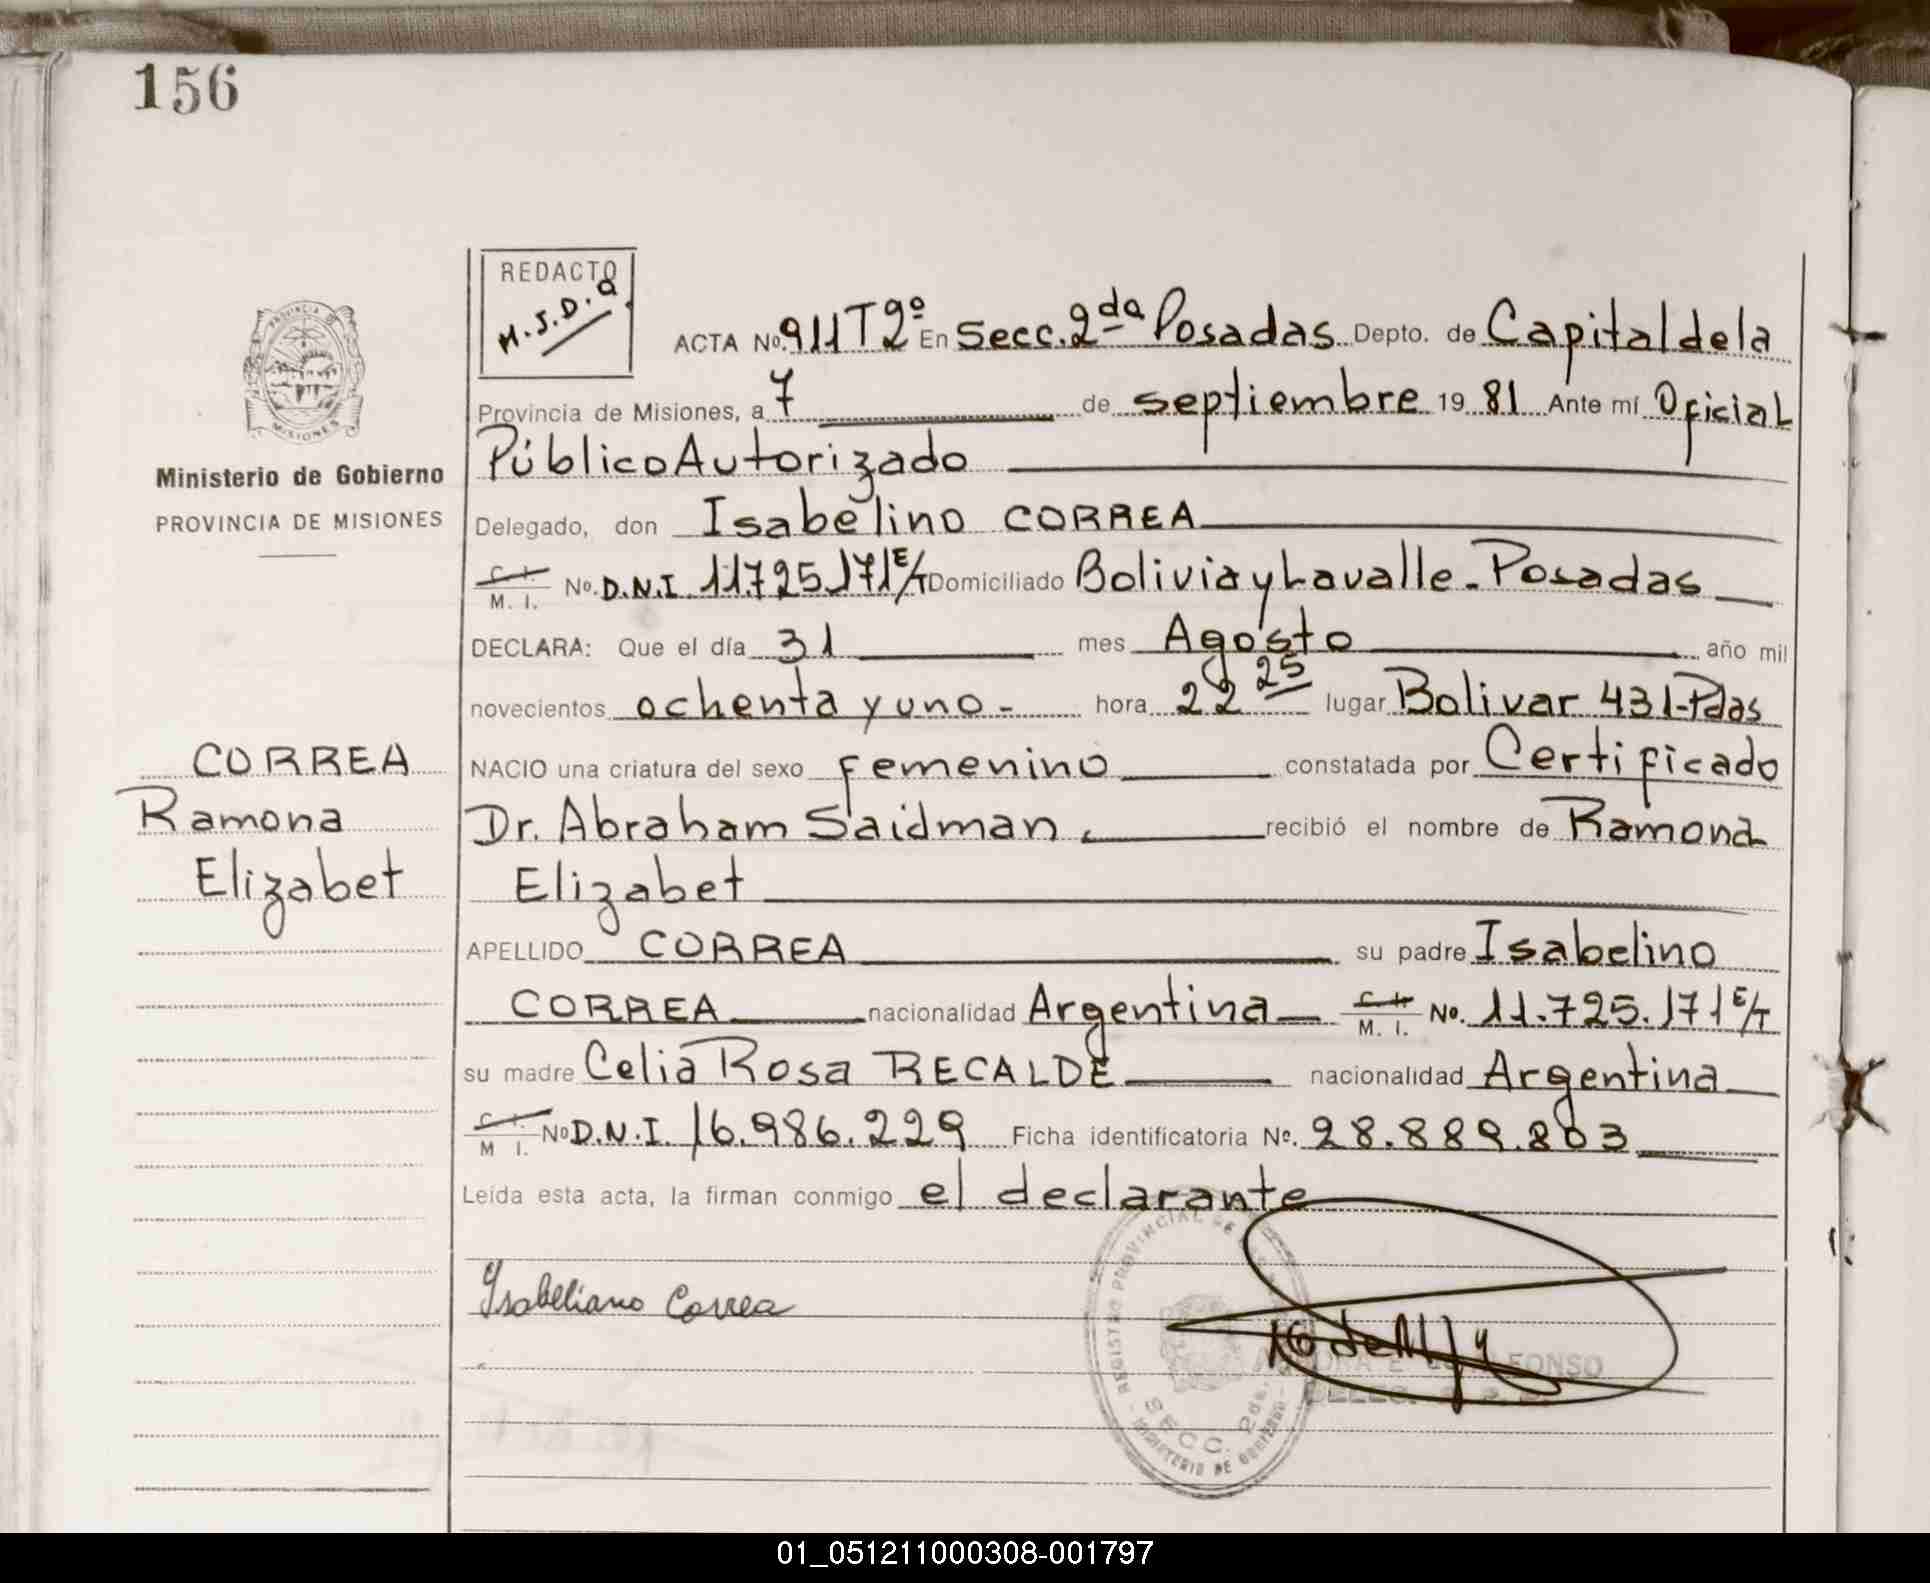 156
REDACTO
M.S.D.Q
ACTA No. 911 T 2º En Secc. 2da Posadas Depto. de Capital de la
Provincia de Misiones, a 7 de septiembre 19 81 Ante mí Oficial
Público Autorizado
Delegado, don Isabelino CORREA
C. I.
M. I. No. D.N.I. 11.725.171 E/T Domiciliado Bolivia y Lavalle - Posadas
DECLARA: Que el día 31 mes Agosto año mil
novecientos ochenta y uno - hora 22 25 lugar Bolivar 431 - Pdas
NACIO una criatura del sexo femenino constatada por Certificado
Dr. Abraham Saidman. recibió el nombre de Ramona
Elizabet
APELLIDO CORREA su padre Isabelino
CORREA nacionalidad Argentina C. I.
M. I. No. 11.725.171 E/T
su madre Celia Rosa RECALDE nacionalidad Argentina
C. I.
M I. No D.N.I. 16.986.229 Ficha identificatoria No. 28.889.803
Leída esta acta, la firman conmigo el declarante
Isabeliano Correa
REGISTRO PROVINCIAL DE
SECC. 2da.
MINISTERIO DE GOBIERNO
PROVINCIA DE
MISIONES
Ministerio de Gobierno
PROVINCIA DE MISIONES
CORREA
Ramona
Elizabet
01_051211000308-001797